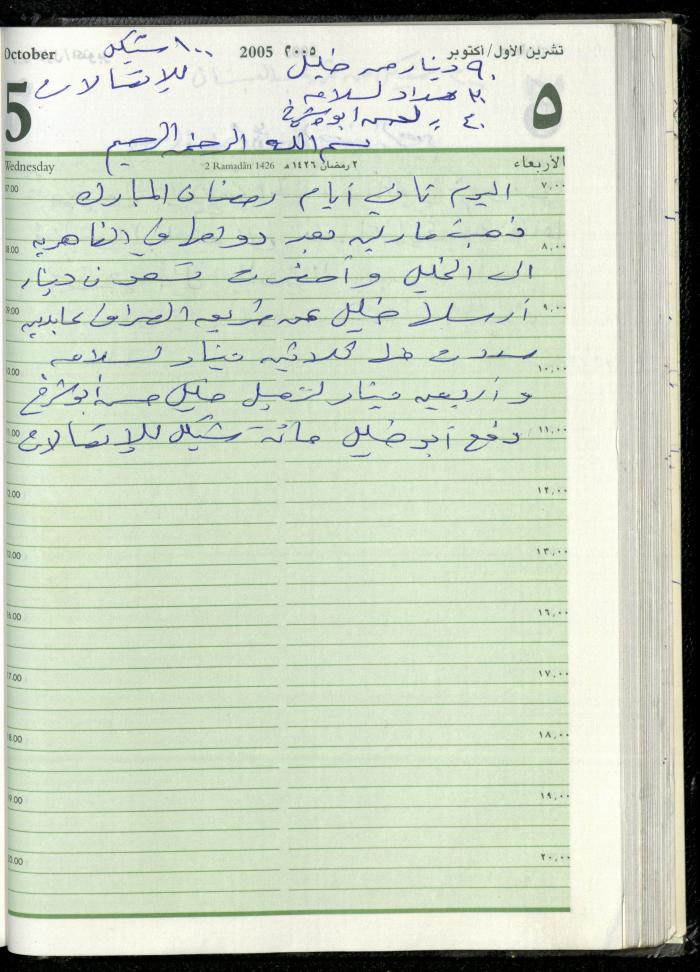 October
2005 ٢٠٠٥
تشرين الأول/أكتوبر
١٠٠ شيكل
للإتصالات
٩٠ دينار من خليل
٣٠ سداد لسلامه
٤٠ = لحسن ابو شرخ
5
٥
بسم الله الرحمن الرحيم
Wednesday
2 Ramadân 1426 ٢ رمضان ١٤٢٦ هـ
الأربعاء
07.00 اليوم ثاني أيام رمضان المبارك ٧,٠٠
08.00 ذهبت مارلين بعد دوامها في الظاهريه ٨,٠٠
الى الخليل وأحضرت تسعون دينار
09.00 أرسلها خليل عن طريق الصراف عابدين ٩,٠٠
سددت منها ثلاثين دينار لسلامه
10.00 ١٠,٠٠
وأربعين دينار لزميل خليل حسن أبو شرخ
11.00 دفع أبو خليل مائة شيكل للإتصالات ١١,٠٠
12.00 ١٢,٠٠
13.00 ١٣,٠٠
16.00 ١٦,٠٠
17.00 ١٧,٠٠
18.00 ١٨,٠٠
19.00 ١٩,٠٠
20.00 ٢٠,٠٠